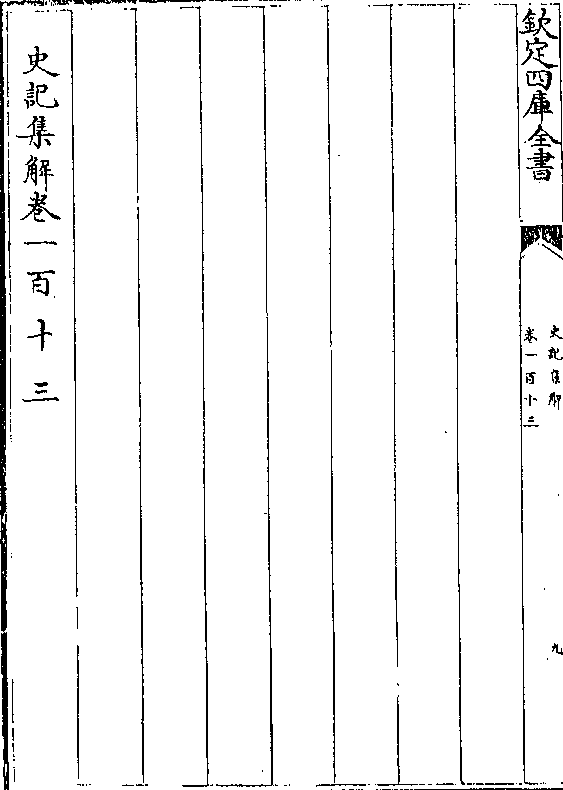 欽定四庫全書
史記集解
卷一百十三
九
史記集解卷一百十三